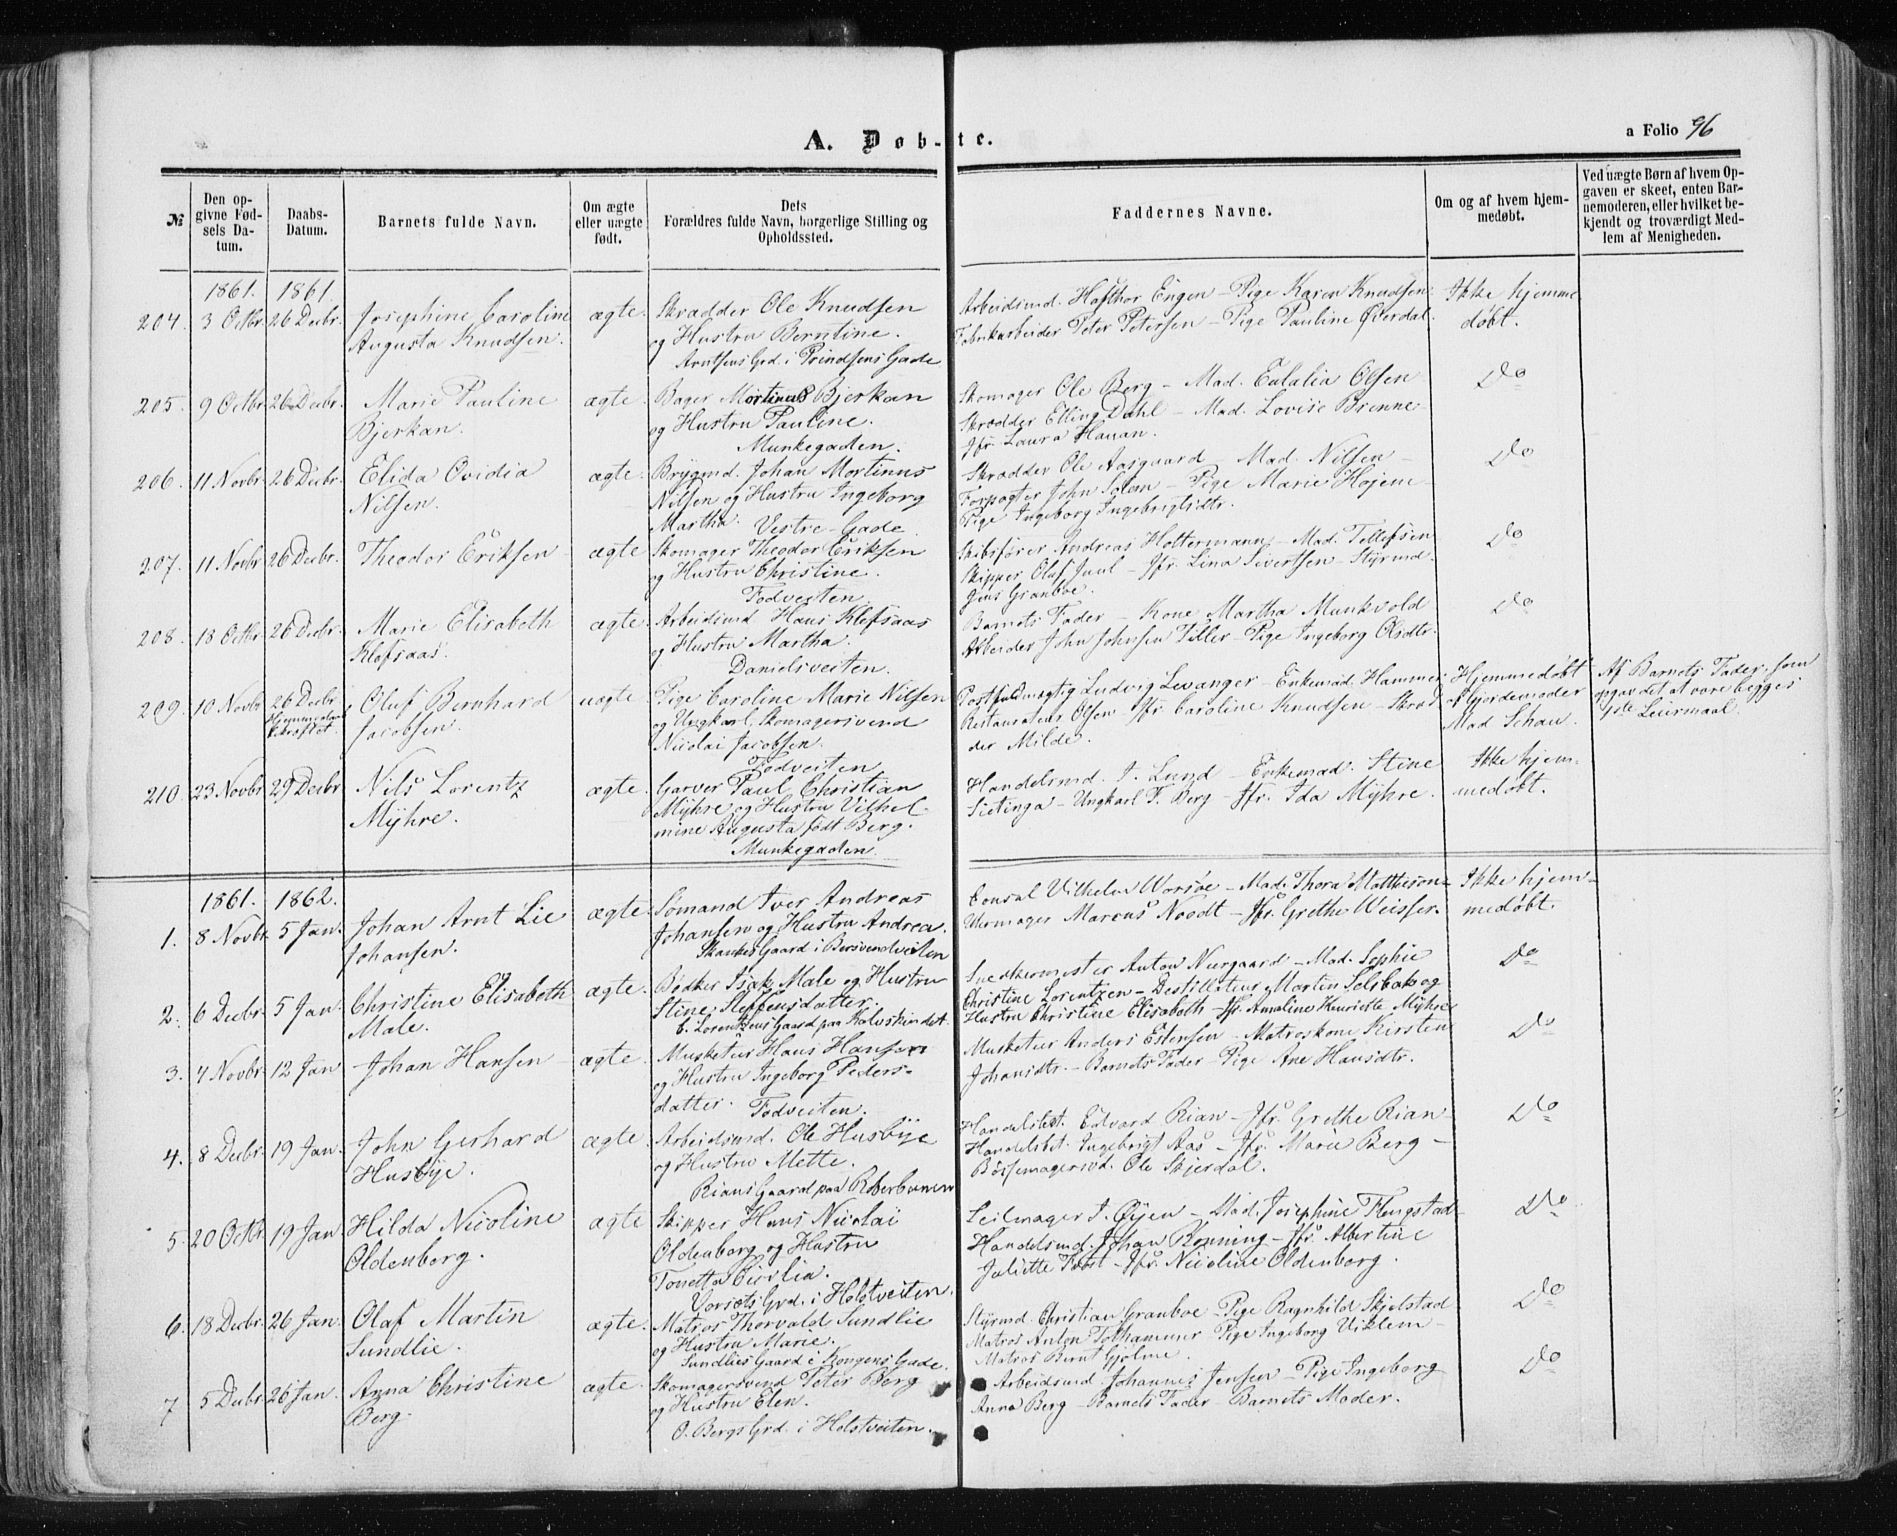 A. Døb-te.
a Folio 96
№
Den opgivne Fødsels Datum.
Daabs-Datum.
Barnets fulde Navn.
Om ægte eller uægte født.
Dets Forældres fulde Navn, borgerlige Stilling og Opholdssted.
Faddernes Navne.
Om og af hvem hjemmedøbt.
Ved uægte Børn af hvem Opgaven er skeet, enten Barnemoderen, eller hvilket bekjendt og troværdigt Medlem af Menigheden.
1861. 1861.
204. 3 Octbr. 26 Decbr. Josephine Caroline ægte. Skrædder Ole Knudsen Arbeidsmd. Hafthor Engen – Pige Karen Knudsen Ikke hjemme
Augusta Knudsen. og Hustru Berntine. Fabrikarbeider Peter Petersen – Pige Pauline Øverdal. døbt.
Arntsens Grd. i Prindsens Gade
205. 9 Octbr. 26 Decbr. Marie Pauline ægte. Bager Mortinus Bjerkan Skomager Ole Berg – Mad. Eulalia Olsen Do
Bjerkan. og Hustru Pauline. Skrædder Elling Dahl – Mad. Lovise Brenne
Munkegaden. Jfr. Laura Hanan.
206. 11 Novbr. 26 Decbr. Elida Ovidia ægte. Brygmd. Johan Mortinus Skrædder Ole Aasgaard – Mad. Nilsen – Do
Nilsen. Nilsen og Hustru Ingeborg Forpagter John Solem – Pige Marie Høiem –
Martha. Vestre Gade Pige Ingeborg Ingebrigtsdtr.
207. 11 Novbr 26 Decbr. Theodor Eriksen ægte Skomager Theodor Eriksen Skibsfører Andreas Holtermann – Mad. Tellefsen Do
og Hustru Christine. Skipper Oluf Juul – Jfr. Lina Sivertsen – Styrmd.
Fodveiten. Jens Granboe.
208. 18 Octbr. 26 Decbr. Marie Elisabeth ægte. Arbeidsmd Hans Klefsaas Barnets Fader – Kone Martha Munkvold Do
Klefsaas. og Hustru Martha. Arbeider John Johnsen Tiller – Pige Ingeborg Olsdtr.
Danielsveiten.
209. 10 Novbr 26 Decbr Oluf Bernhard uægte Pige Caroline Marie Nilsen Postfuldmægtig Ludvig Levanger – Enkemad. Hammer Hjemmedøbt Af Barnets Fader, som
Jacobsen. og Ungkarl, Skomagersvend Restaurateur Olsen – Jfr. Caroline Knudsen – Skræd af Gjordemoder opgav det at være begges
Nicolai Jacobsen. der Milde. Mad Schau. 1ste Leiermaal.
Fodveiten
210. 23 Novbr 29 Decbr Nils Lorentz ægte. Garver Paul Christian Handelsmd. J. Lund – Enkemad. Stine Ikke hjem-
Myhre. Myhre og Hustru Vilhel- – Ungkarl F. Berg – Jfr. Ida Myhre. medøbt.
mine Augusta født Berg.
Munkegaden.
1861. 1862.
1. 8 Novbr. 5 Jan. Johan Arnt Lie ægte. Sømand Iver Andreas Consul Vilhelm Worsøe – Mad. Thora Matthieson – Ikke hjem-
Johansen. Johansen og Hustru Andrea. Uhrmager Marcus Noodt – Jfr. Grethe Weisser. medøbt.
Skankes Gaard i Bersvendveiten
2. 6 Decbr. 5 Jan. Christine Elisabeth ægte. Bødker Isak Male og Hustru Snedkermester Anton Neergaard – Mad. Sophie Do
Male. Stine Steffensdatter. Christine Lorentzen – Destillateur Martin Selsbak og
C. Lorentzens Gaard paa Kalvskindet. Hustru Christine Elisabeth – Jfr. Amaline Henriette Myhre
3. 4 Novbr. 12 Jan Johan Hansen ægte. Musketeer Hans Hansen Musketeer Anders Estensen – Matroskone Kirsten Do
og Hustru Ingeborg Peders- Johansdtr. – Barnets Fader – Pige Ane Hansdtr.
datter. Fodveiten.
4. 8 Decbr. 19 Jan. John Gerhard ægte. Arbeidsmd. Ole Husbye Handelsbet. Edvard Rian – Jfr. Grethe Rian – Do
Husbye. og Hustru Mette. Handelsbet. Ingebrigt Aas – Jfr. Marie Berg –
Rians Gaard paa Reberbanen Bøssemagersvd. Ole Skjerdal.
5. 20 Octbr. 19 Jan Hilda Nicoline ægte Skipper Hans Nicolai Seilmager J. Øyen – Mad. Josephine Flengstad Do
Oldenborg. Oldenborg og Hustru Handelsmd. Johan Rønning – Jfr. Albertine
Tonetta Cicilia. Juliette Foos – Jfr. Nicoline Oldenborg.
Vorsets Grd. i Holstveiten.
6. 18 Decbr. 26 Jan. Olaf Martin ægte. Matros Thorvald Sundlie Styrmd. Christian Granboe – Pige Ragnhild Skjelstad Do
Sundlie. og Hustru Marie. Matros Anton Tolhammer – Pige Ingeborg Viklem –
Sundlies Gaard i Kongens Gade. Matros Bernt Gjølme.
7 5 Decbr. 26 Jan. Anna Christine ægte. Skomagersvend Peter Berg Arbeidsmd. Johannes Jensen – Pige Ingeborg Do
Berg. og Hustru Elen. Anna Berg – Barnets Fader – Barnets Moder.
O. Bergs Grd. i Holstveiten.